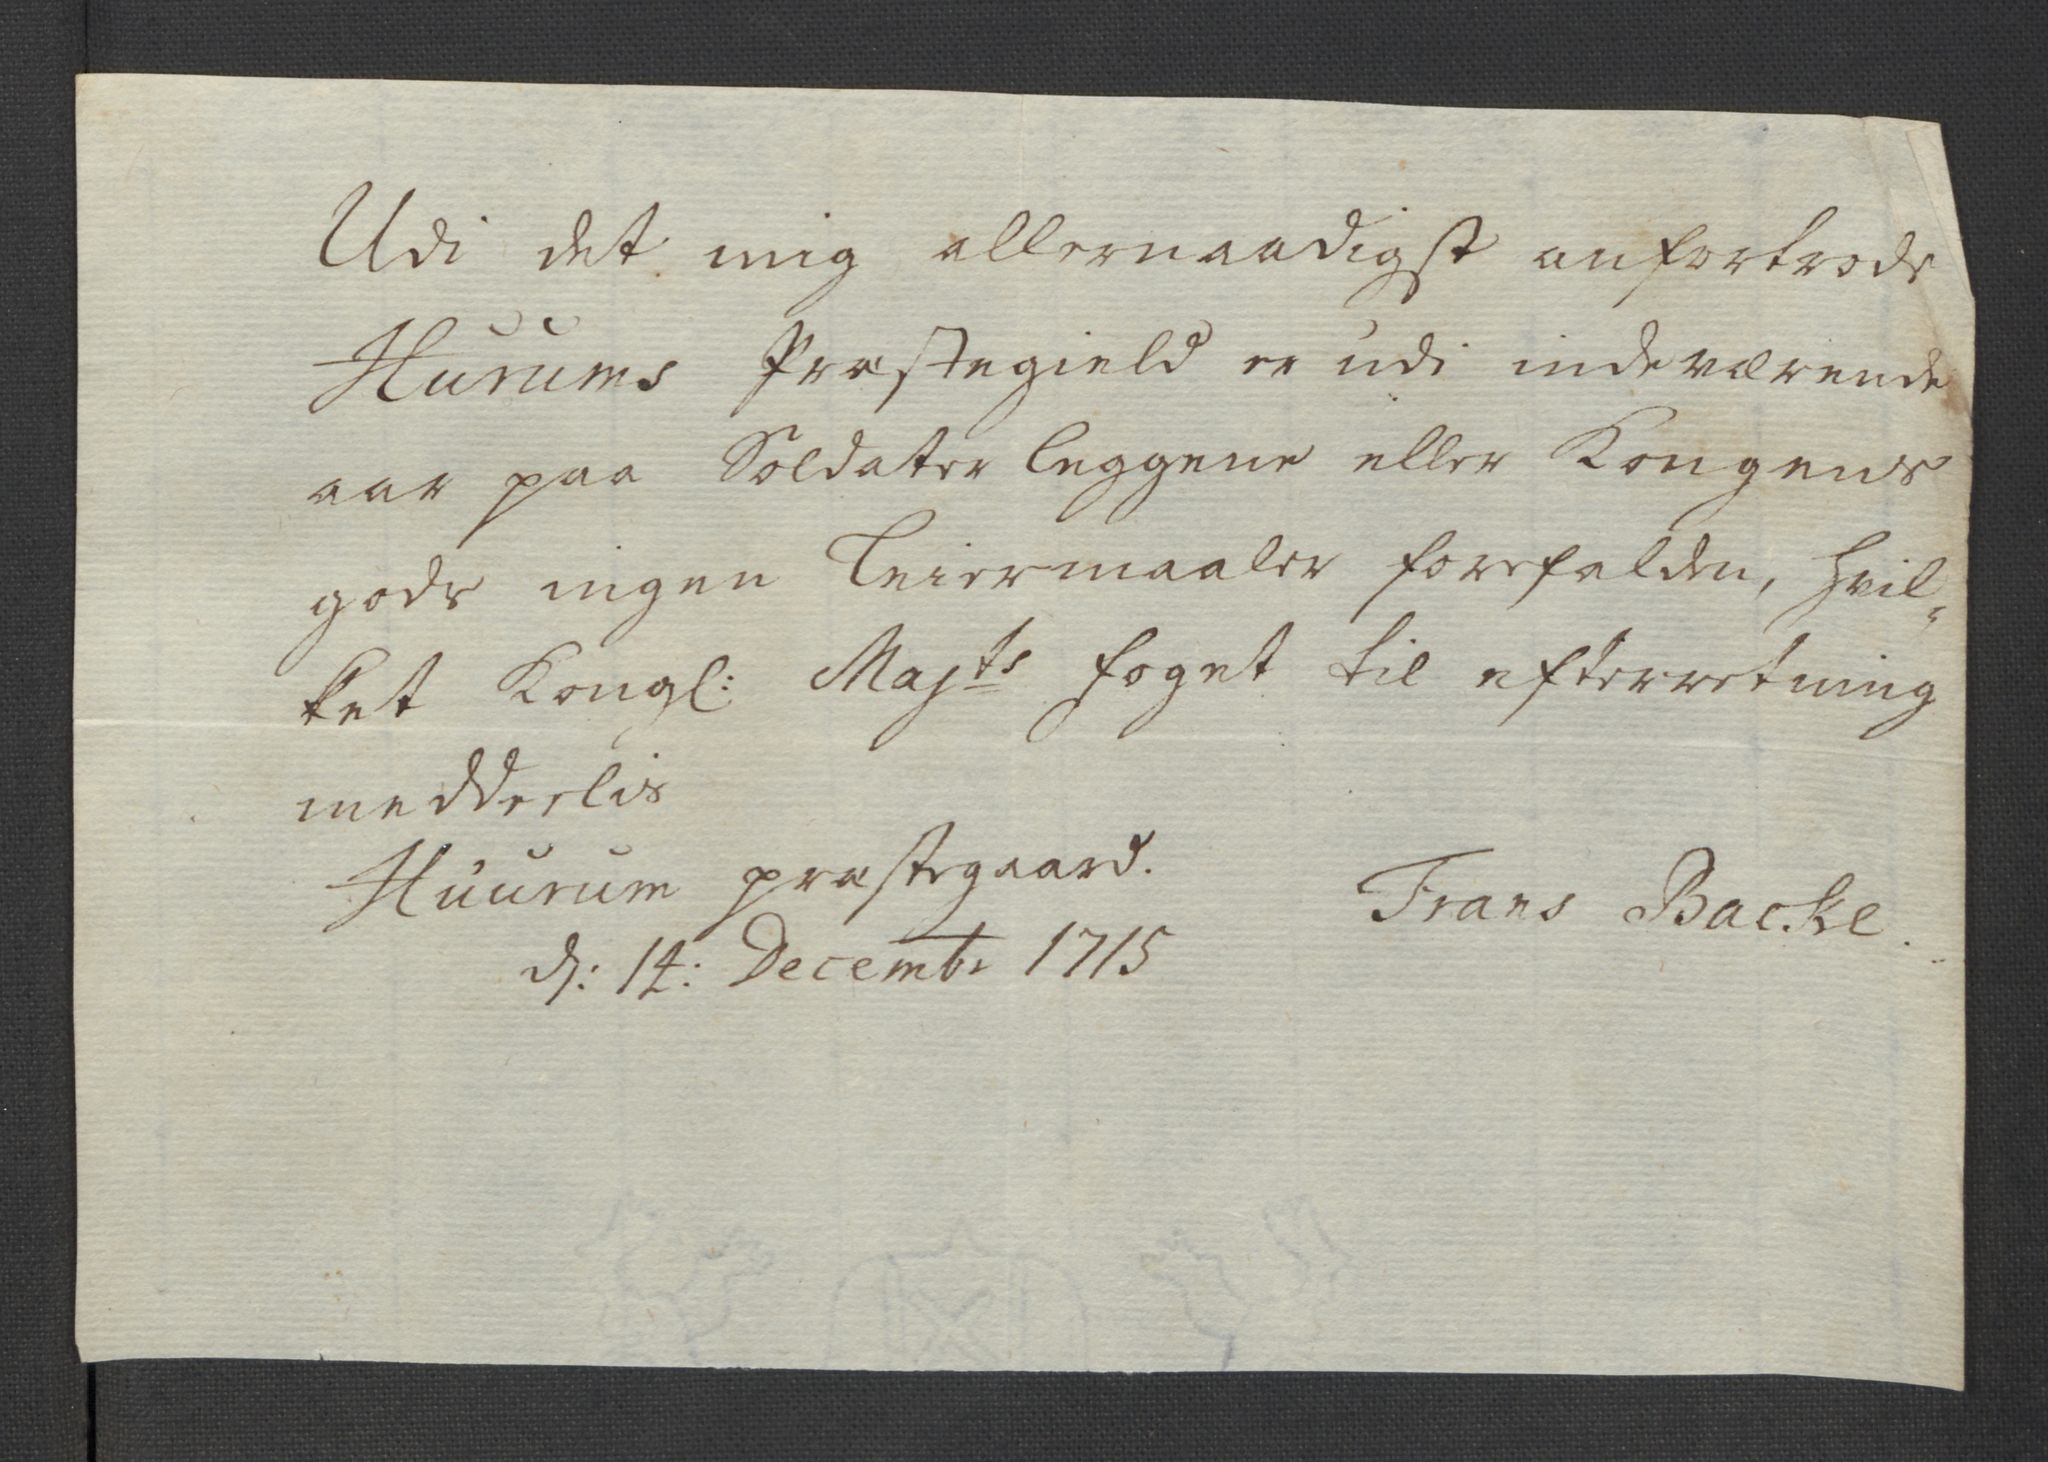 Udi det mig allernaadigst anfortrode
Hurums Præstegield er udi indeværende
aar paa Soldater leggene eller Kongens
gods ingen Leiermaaler forefalden, hvil-
ket Kongl: Majts foget til efterretning
meddeelis
Huurum præstegaard.
d: 14: Decembr 1715
Frans Backe.